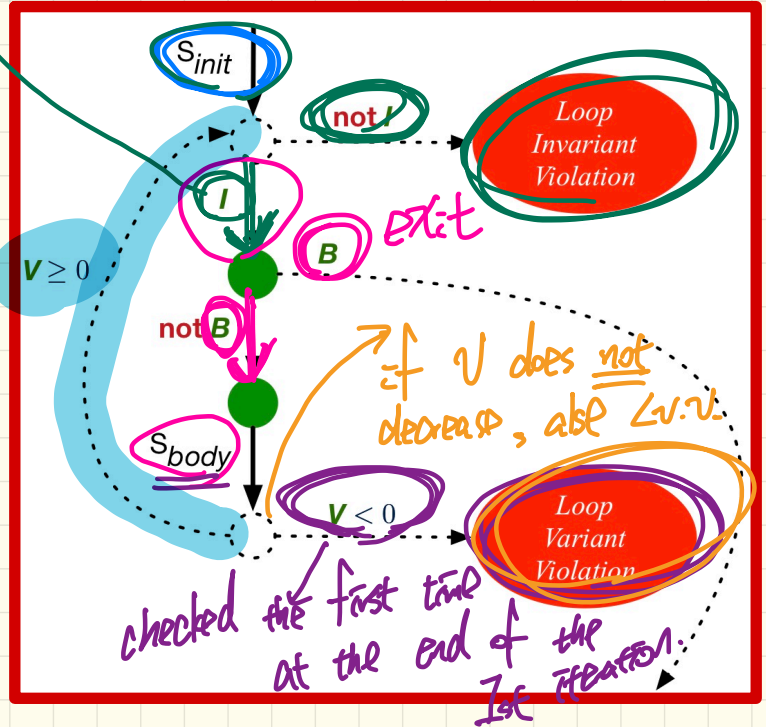 Sinit
not I
Loop
Invariant
Violation
I
B
exit
V ≥ 0
not B
if V does not
decrease, also L.V.V.
Sbody
V < 0
Loop
Variant
Violation
checked the first time
at the end of the
1st iteration.